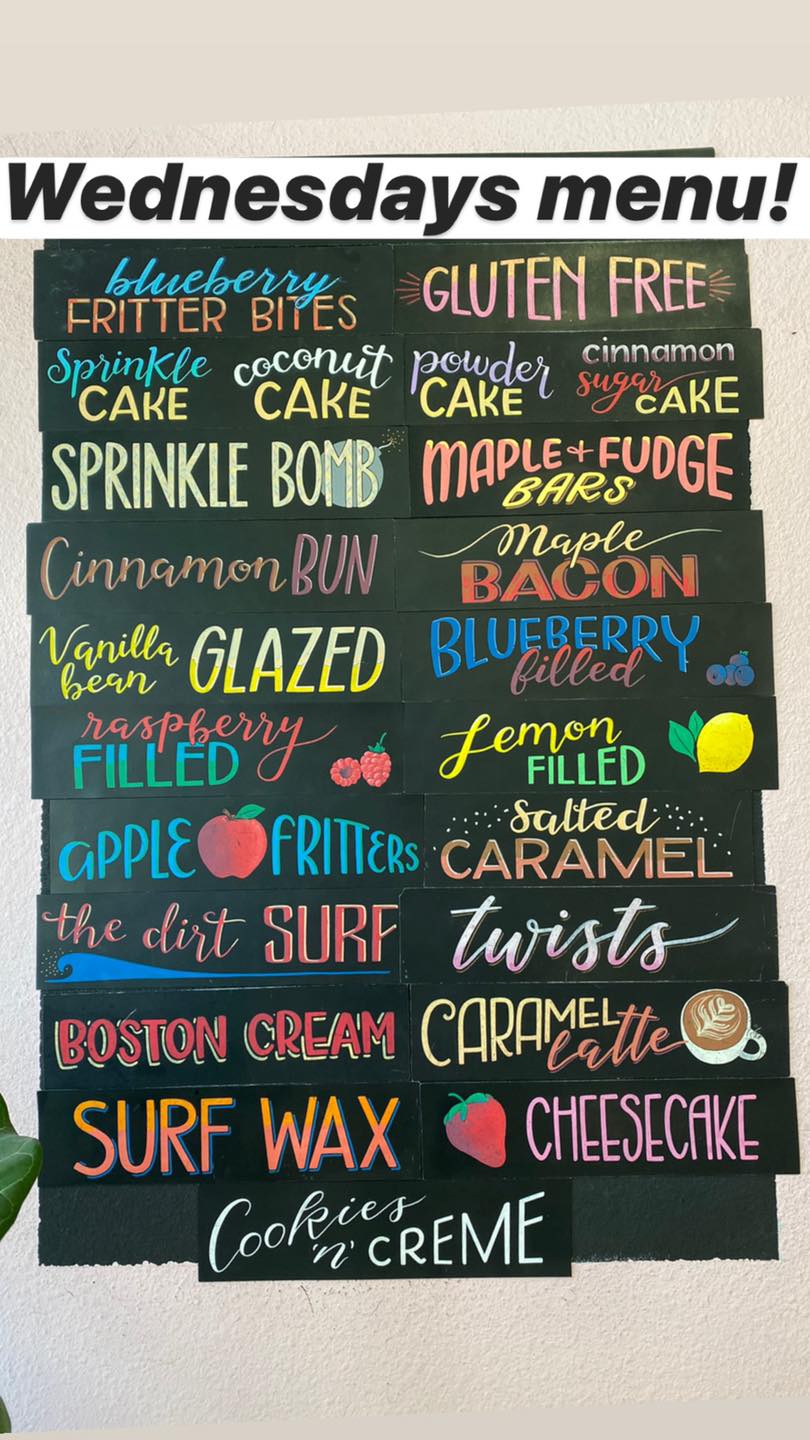 Wednesdays menu!
blueberry
FRITTER BITES
GLUTEN FREE
Sprinkle
CAKE
coconut
CAKE
powder
CAKE
cinnamon
sugar
CAKE
SPRINKLE BOMB
MAPLE + FUDGE
BARS
Cinnamon BUN
Maple
BACON
Vanilla
bean GLAZED
BLUEBERRY
filled
raspberry
FILLED
Lemon
FILLED
APPLE FRITTERS
Salted
CARAMEL
the dirt SURF
twists
BOSTON CREAM
CARAMEL
latte
SURF WAX
CHEESECAKE
Cookies
'n' CREME